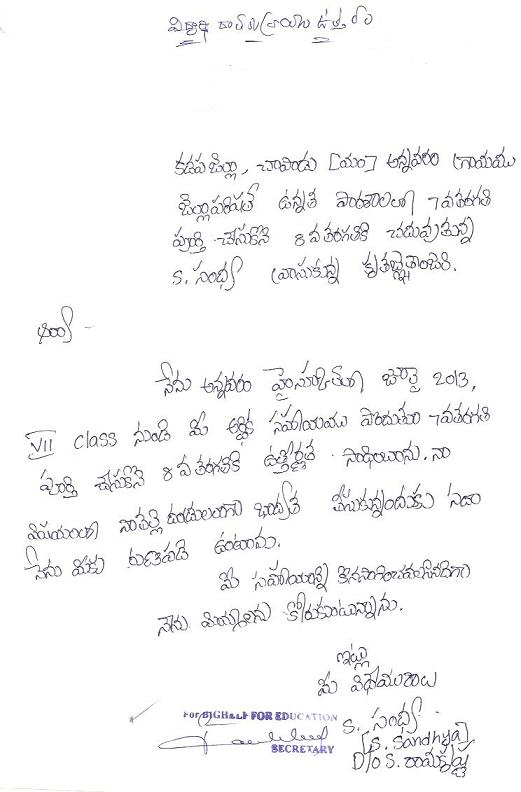 విద్యార్థి రాసుకొనిన ఉత్తరం
కడప జిల్లా, చాపాడు [మం] అన్నవరం గ్రామము
జిల్లాపరిషత్ ఉన్నత పాఠశాలలో 7వతరగతి
పూర్తి చేసుకొని 8వ తరగతికి చదువుతున్న
S. సంధ్య వ్రాసుకున్న కృతజ్ఞతాంజలి.
సార్ -
నేను అన్నవరం హైస్కూల్‌లో జూలై 2013,
VII class నుండి మీ ఆర్థిక సహాయము పొందుతూ 7వతరగతి
పూర్తి చేసుకొని 8వ తరగతికి ఉత్తీర్ణత సాధించాను. నా
విషయంలో నా తల్లిదండ్రులలాగా బాధ్యత తీసుకున్నందుకు సదా
నేను మీకు రుణపడి ఉంటాను.
మీ సహాయాన్ని కొనసాగించవలసినదిగా
నేను మిమ్మల్ని కోరుకుంటున్నాను.
ఇట్లు
మీ విధేయురాలు
S. సంధ్య
[S. Sandhya]
D/o S. రామకృష్ణ
For BIGHELP FOR EDUCATION
SECRETARY